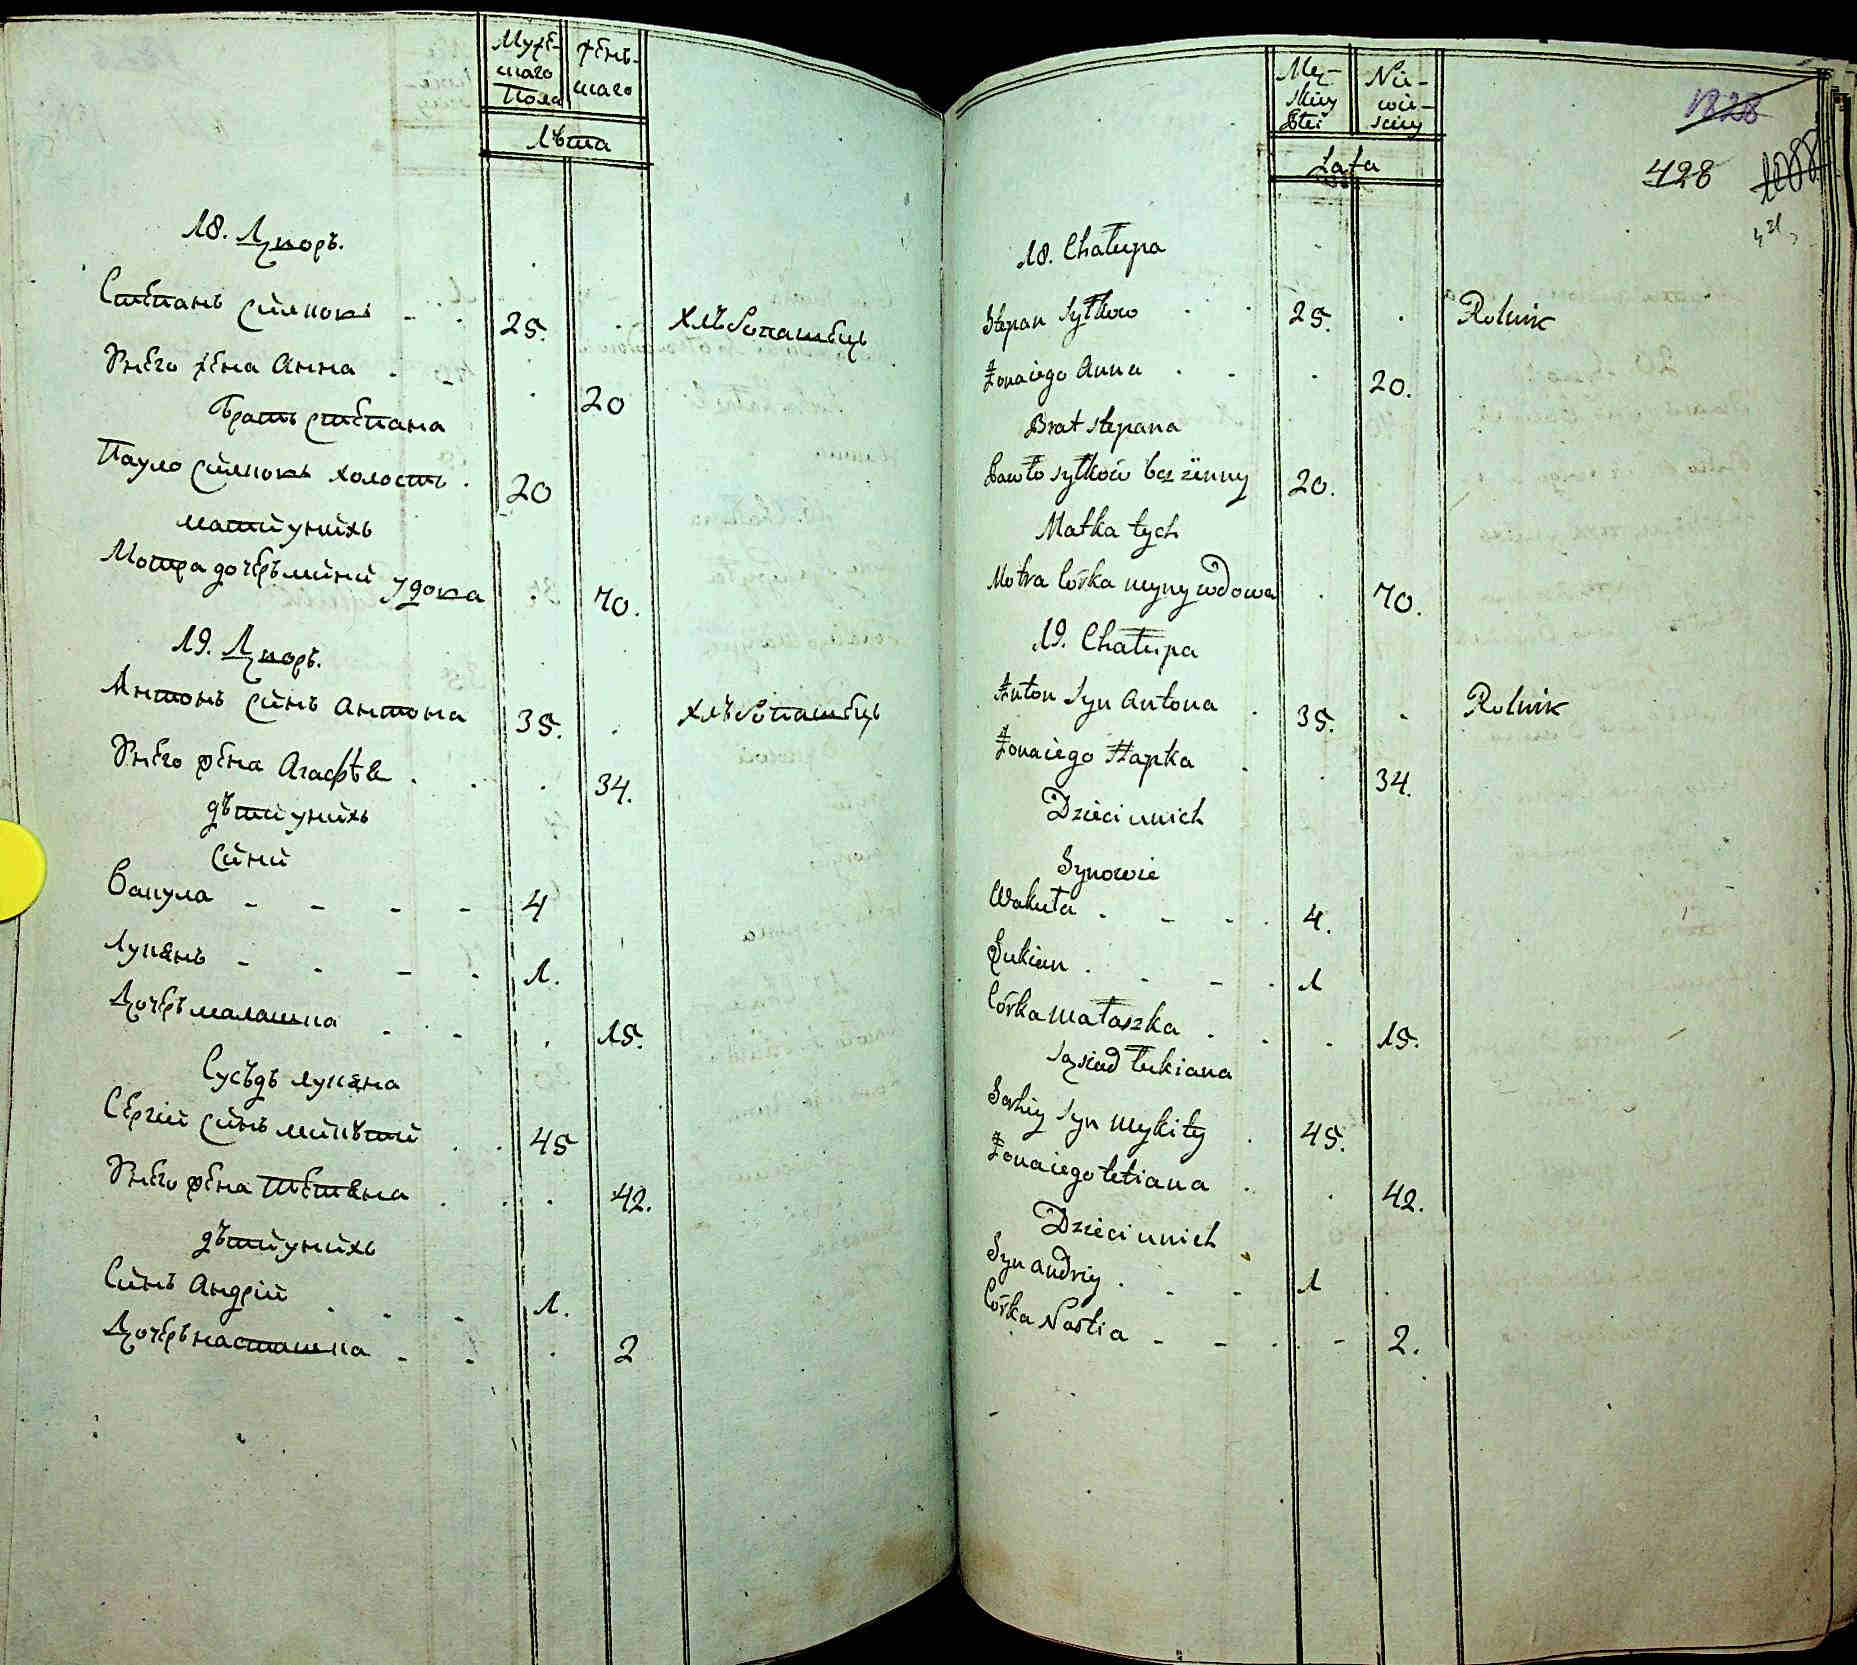 Муже-
скаго
Пола
жень-
скаго
Лѣта
18. Дворъ.
Степанъ Силковъ 25. хлѣбопашець
Унего жена Анна 20
братъ Степана
Пауло Силковъ холостъ. 20
мати унихъ
Мотра дочерь мини удова 70.
19. Дворъ.
Антонъ Синъ Антона 35. хлѣбопашець
Унего жена Агафѣя 34.
дѣти унихъ
Сини
Вакула 4
Лукянъ 1.
Дочерь малашка 15.
Сусѣдъ лукяна
Сергий Синъ микѣти 45
Унего жена Тетяна 42.
дѣти унихъ
Синъ Андрій 1.
Дочерь насташка 2
Mę-
skiey
Płci
Nie-
wie-
sciey
Lata
1828
428
18. Chałupa
Stepan Syłkow 25. Rolnik
Żona iego Anna 20.
Brat stepana
Pawło syłków bez żenny 20.
Matka tych
Motra Córka myny wdowa 70.
19. Chałupa
Anton Syn Antona 35. Rolnik
Żona iego Hapka 34.
Dzieci unich
Synowie
Wakuła 4.
Łukian 1
Córka małaszka 15.
Sąsiad łukiana
Serhiy Syn mykity 45.
Żona iego tetiana 42.
Dzieci unich
Syn andriy 1
Córka Nastia 2.